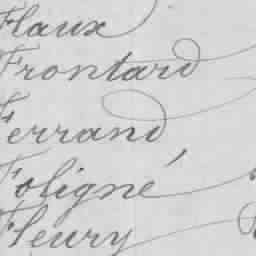 Flaux
Frontard
Ferrand
Foligné
Fleury